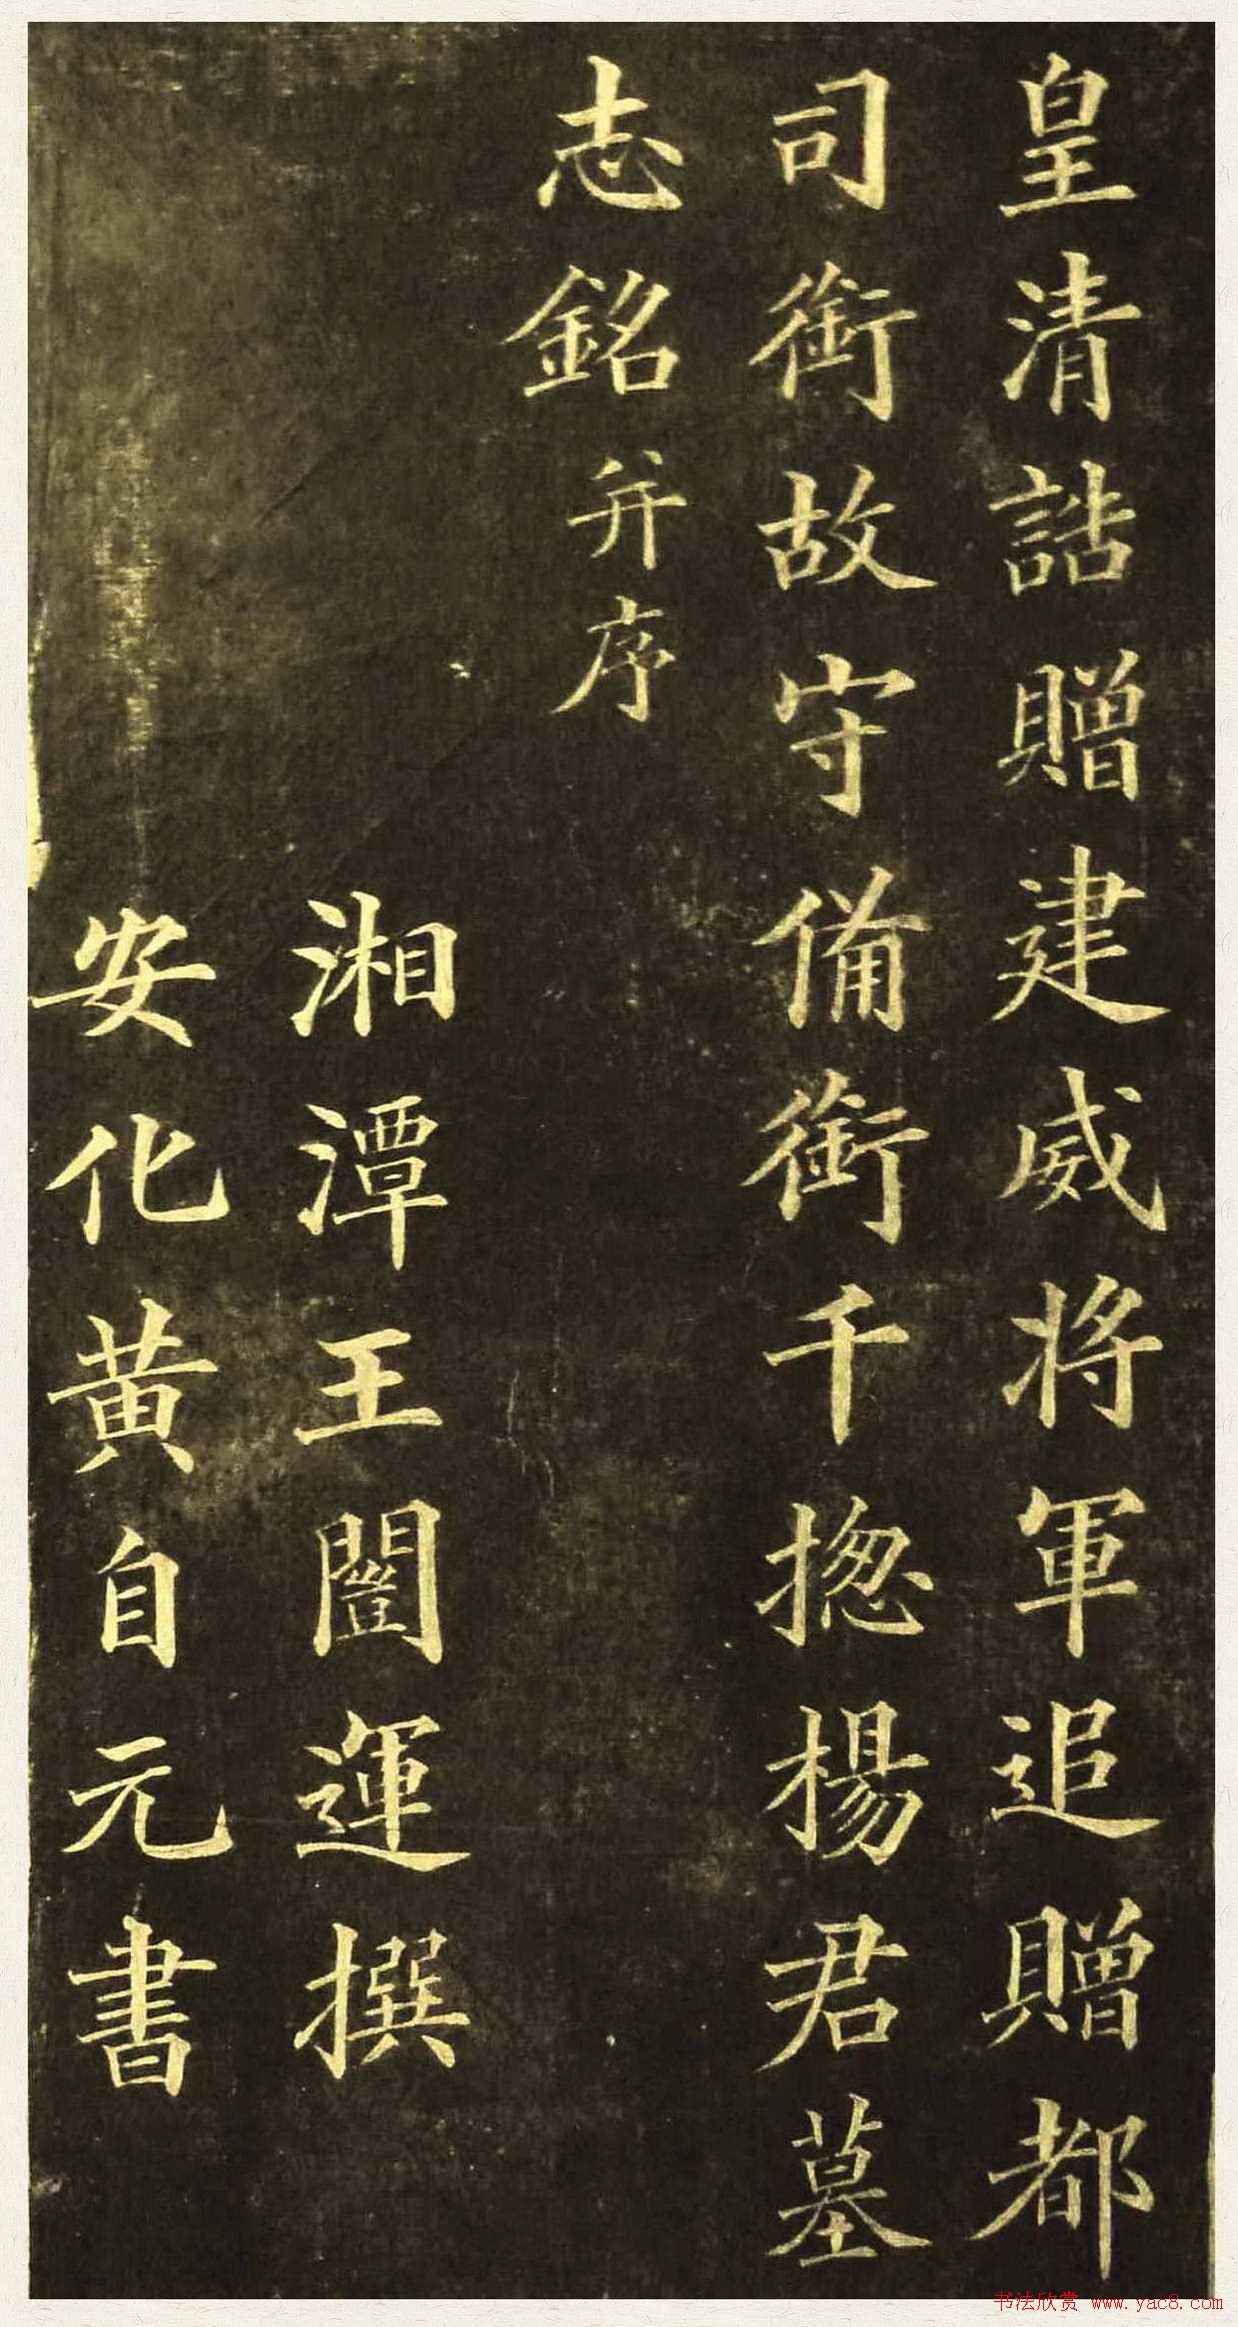 皇清誥贈建威將軍追贈都
司銜故守備銜千揔楊君墓
志銘并序
湘潭王闓運撰
安化黃自元書
书法欣赏 www.yac8.com